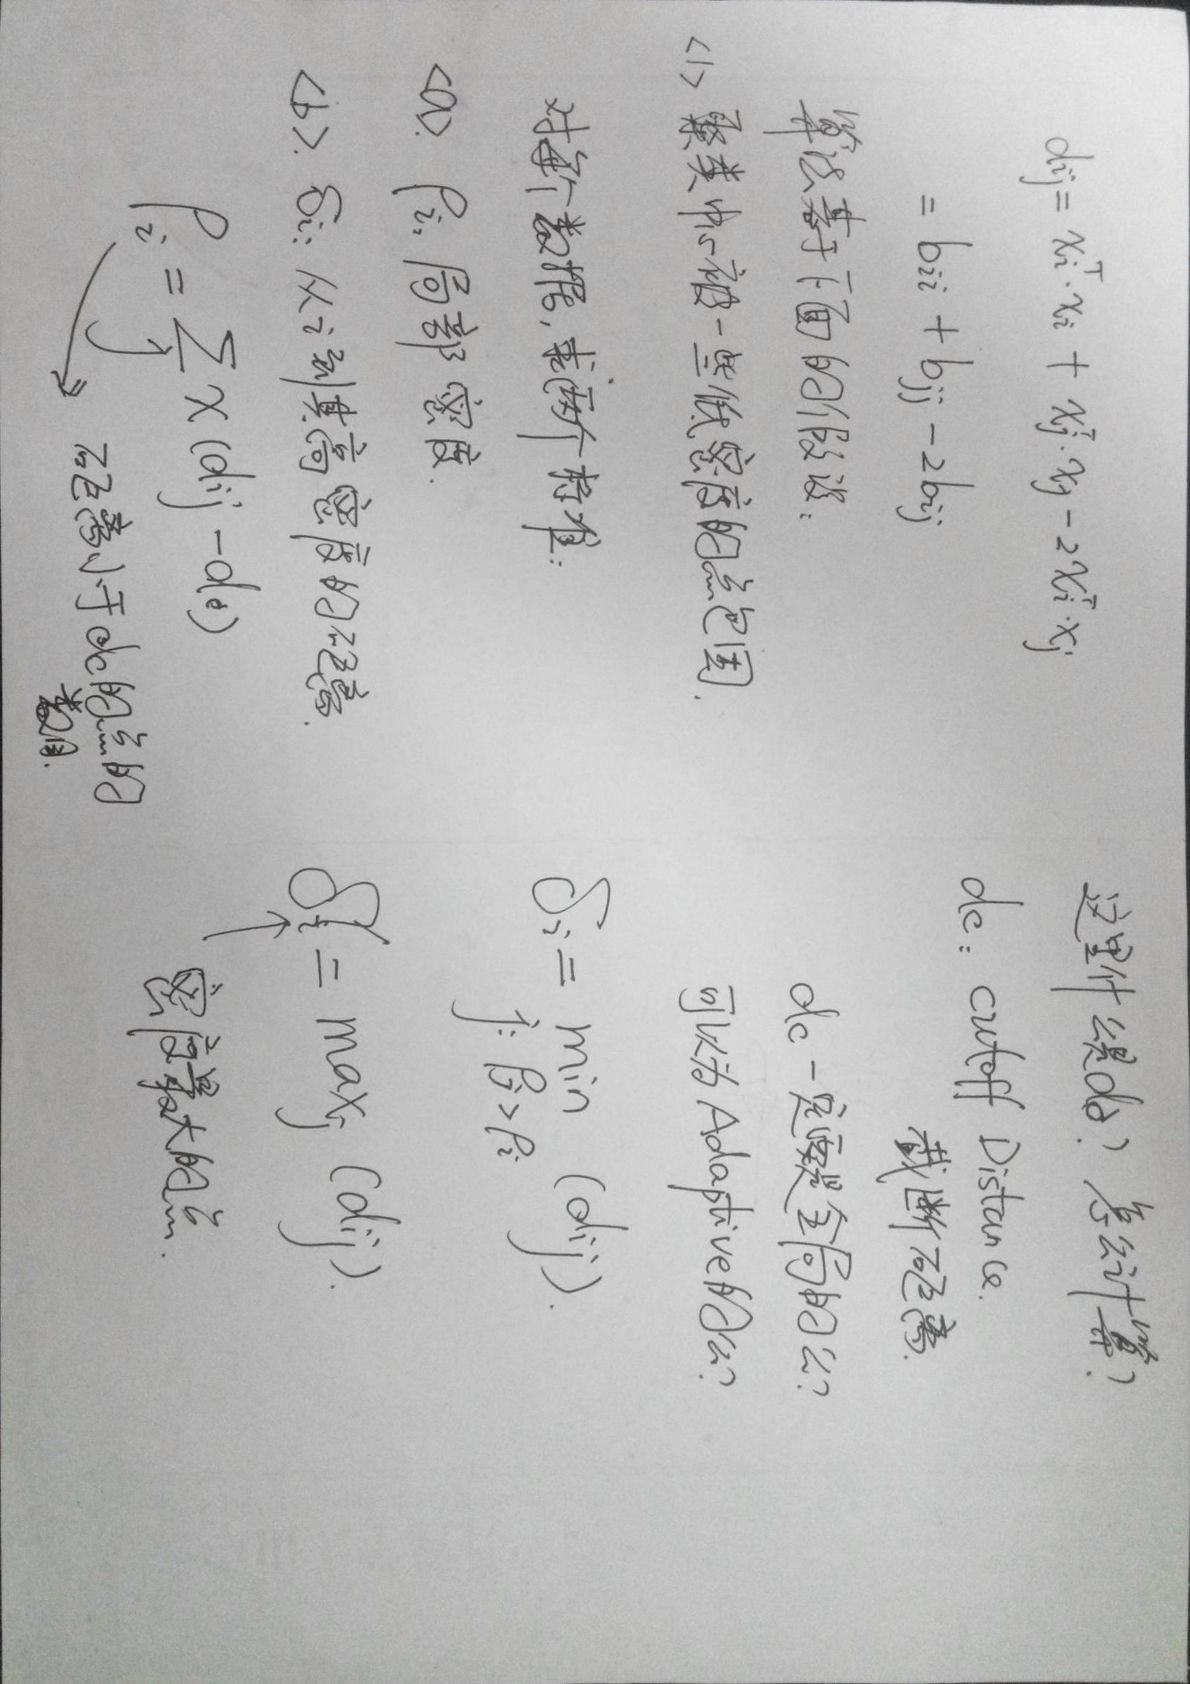 dij = xiᵀ·xi + xjᵀ·xj - 2xiᵀ·xj
= bii + bjj - 2bij
算法基于下面的假设：
<1> 聚类中心被一些低密度的点包围.
对每个数据, 求两个标准:
<a>. ρi, 局部密度.
<b>. δi: 从i到其高密度的距离.
ρi = Σj χ(dij - dc)
距离小于dc的点的
数目.
这里什么是dc? 怎么计算?
dc: cutoff Distance.
截断距离.
dc一定要是全局的么?
可以为Adaptive的么?
δi = min (dij).
j: ρj > ρi
δi = maxj (dij).
密度最大的点.